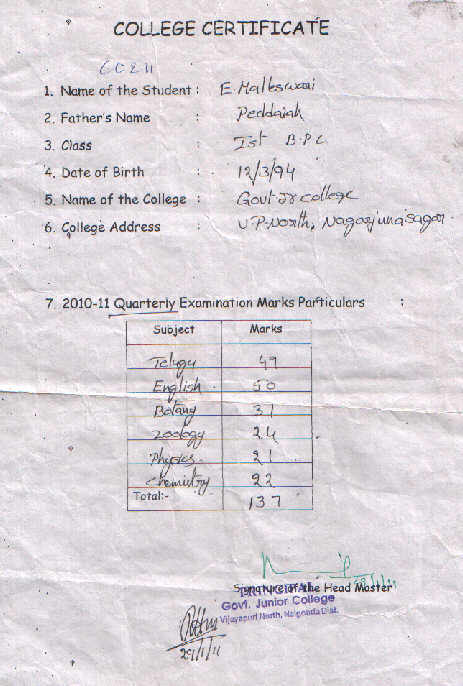 COLLEGE CERTIFICATE
1. Name of the Student : E. Malleswari
2. Father's Name : Peddaiah
3. Class : Ist B.P.C
4. Date of Birth : 12/3/94
5. Name of the College : Govt Jr college
6. College Address : V.P. North, Nagarjuna Sagar.
7. 2010-11 Quarterly Examination Marks Particulars :
Subject Marks
Telugu 49
English 50
Botany 31
Zoology 24
Physics 21
Chemistry 22
Total:- 137
Signature of the Head Master
PRINCIPAL
Govt. Junior College
Vijayapuri North, Nalgonda Dist.
29/1/11